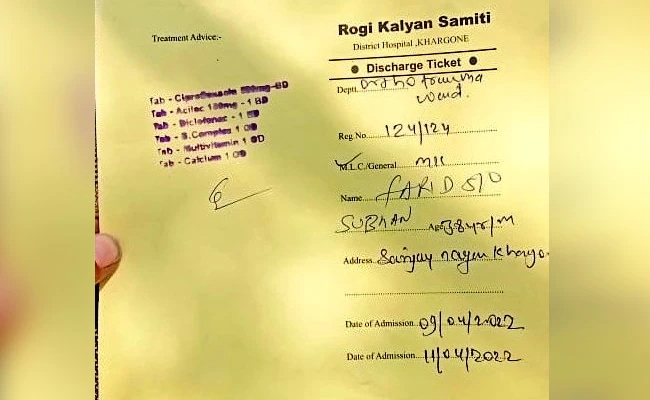 Treatment Advice:-
Tab - Ciprofloxacin 500mg-BD
Tab - Aciloc 150mg - 1 BD
Tab - Diclofenac - 1 BD
Tab - B.Complex 1 OD
Tab - Multivitamin 1 OD
Tab - Calcium 1 OD
Rogi Kalyan Samiti
District Hospital ,KHARGONE
● Discharge Ticket ●
Deptt. Ortho trauma
ward.
Reg No. 124/124
M.L.C./General MLC
Name FARID S/O
SUBHAN Age 38yr/M
Address Sanjay nagar Khargo.
Date of Admission 09/04/2022
Date of Admission 11/04/2022